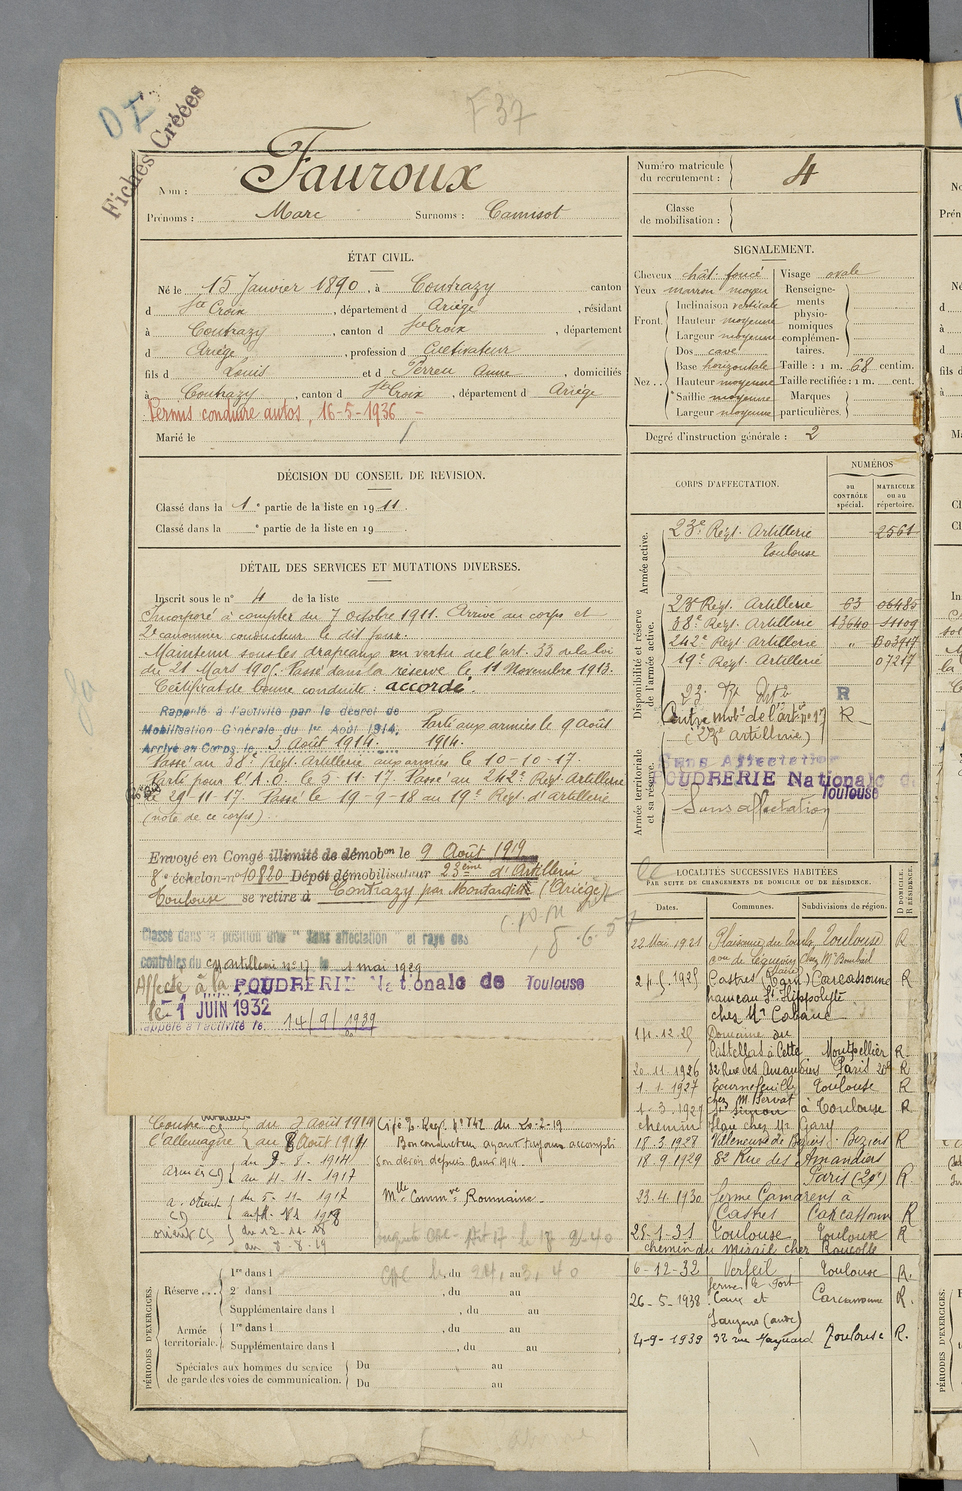 F 37
DI
Fiches Créées
Nom : Fauroux
Prénoms : Marc Surnoms : Camisot
Numéro matricule du recrutement : 4
Classe de mobilisation :
ÉTAT CIVIL.
Né le 15 Janvier 1890, à Contrazy canton
d Ste Croix, département d Ariège, résidant
à Contrazy, canton d Ste Croix, département
d Ariège, profession d Cultivateur
fils d Louis et d Perreu Anne, domiciliés
à Contrazy, canton d Ste Croix, département d Ariège
Permis conduire autos, 16-5-1936 -
Marié le
DÉCISION DU CONSEIL DE REVISION.
Classé dans la 1e partie de la liste en 1911.
Classé dans la e partie de la liste en 19
DÉTAIL DES SERVICES ET MUTATIONS DIVERSES.
Inscrit sous le n° 4 de la liste
Incorporé à compter du 7 octobre 1911. Arrivé au corps et
2e canonnier conducteur le dit jour.
Maintenu sous les drapeaux en vertu de l'art. 33 de la loi
du 21 Mars 1905. Passé dans la réserve le 11 Novembre 1913.
Certificat de bonne conduite : accordé.
Rappelé à l'activité par le décret de
Mobilisation Générale du 1er Août 1914. Parti aux armées le 9 Août
Arrivé au Corps le 3 Août 1914. 1914.
Passé au 38e Régt. Artillerie aux armées le 10-10-17.
Parti pour l'A.O. le 5-11-17. Passé au 242e Régt Artillerie
le 29-11-17. Passé le 19-9-18 au 19e Régt. d'Artillerie
(note de ce corps).
Envoyé en Congé illimité de démobon le 9 Août 1919
8e échelon n° 10820 Dépôt démobilisateur 23ème d'Artillerie
Toulouse se retire à Contrazy par Montardit (Ariège)
Classé dans la position dite "Sans affectation" et rayé des
contrôles du Artillerie n° 17 le 1 mai 1929
Affecté à la POUDRERIE Nationale de Toulouse
le 1 JUIN 1932
rappelé à l'activité le 14/9/1939
Contre l'allemagne du 3 août 1914 au 8 Août 1914
armées du 9-8-1914 au 4-11-1917
a. orient du 5-11-1917
orient du 12-11-18
au 8-8-19
Cité Régt. n° 742 du 20-2-19
Bon conducteur ayant toujours accompli
son devoir depuis Août 1914.
Mlle Commve Roumaine.
PÉRIODES D'EXERCICES.
Réserve... 1re dans l , du 24, au 3, 40
2e dans l , du au
Supplémentaire dans l , du au
Armée territoriale. 1re dans l , du au
Supplémentaire dans l , du au
Spéciales aux hommes du service de garde des voies de communication. Du au
Du au
SIGNALEMENT.
Cheveux chât. foncé
Yeux marron moyen
Front. Inclinaison verticale
Hauteur moyenne
Largeur moyenne
Nez.. Dos cave
Base horizontale
Hauteur moyenne
Saillie moyenne
Largeur moyenne
Visage ovale
Renseignements physionomiques complémentaires.
Taille : 1 m. 68 centim.
Taille rectifiée : 1 m. cent.
Marques particulières.
Degré d'instruction générale : 2
CORPS D'AFFECTATION.
NUMÉROS
au CONTRÔLE spécial.
MATRICULE ou au répertoire.
Armée active.
23e Régt. Artillerie 2561
Toulouse
Disponibilité et réserve de l'armée active.
23e Régt. Artillerie 63 06485
38e Régt. Artillerie 13640
242e Régt Artillerie "
19e Régt. Artillerie 07217
R
Centre mobe de l'artie n° 17 R
(23e Artillerie)
Armée territoriale et sa réserve.
Sans Affectation
POUDRERIE Nationale de
Toulouse
Sans affectation
LOCALITÉS SUCCESSIVES HABITÉES
PAR SUITE DE CHANGEMENTS DE DOMICILE OU DE RÉSIDENCE.
Dates. Communes. Subdivisions de région. D DOMICILE. R RÉSIDENCE.
22 Mai 1921 Plaisance du Touch Toulouse R
Castres (Tarn) Carcassonne R
hameau St Hippolyte
chez Mr Cabanc
Domaine du
Castellas à Cette Montpellier R
20-11-1926 82 Rue des Amandiers Paris 20e R
1-1-1927 Tournefeuille Toulouse R
1-3-1927 St Simon à Toulouse R
chemin chez Mr Gary
18-3-1928 Villeneuve de Béziers Béziers R
18-9-1929 82 Rue des Amandiers
Paris (20e) R
23-4-1930 ferme Camarens à
Castres Carcassonne R
25-1-31 Toulouse Toulouse R
chemin du Mirail chez
6-12-32 Verfeil Toulouse R.
26-5-1938 Carcassonne R.
(aude)
4-9-1939 32 rue Toulouse R.